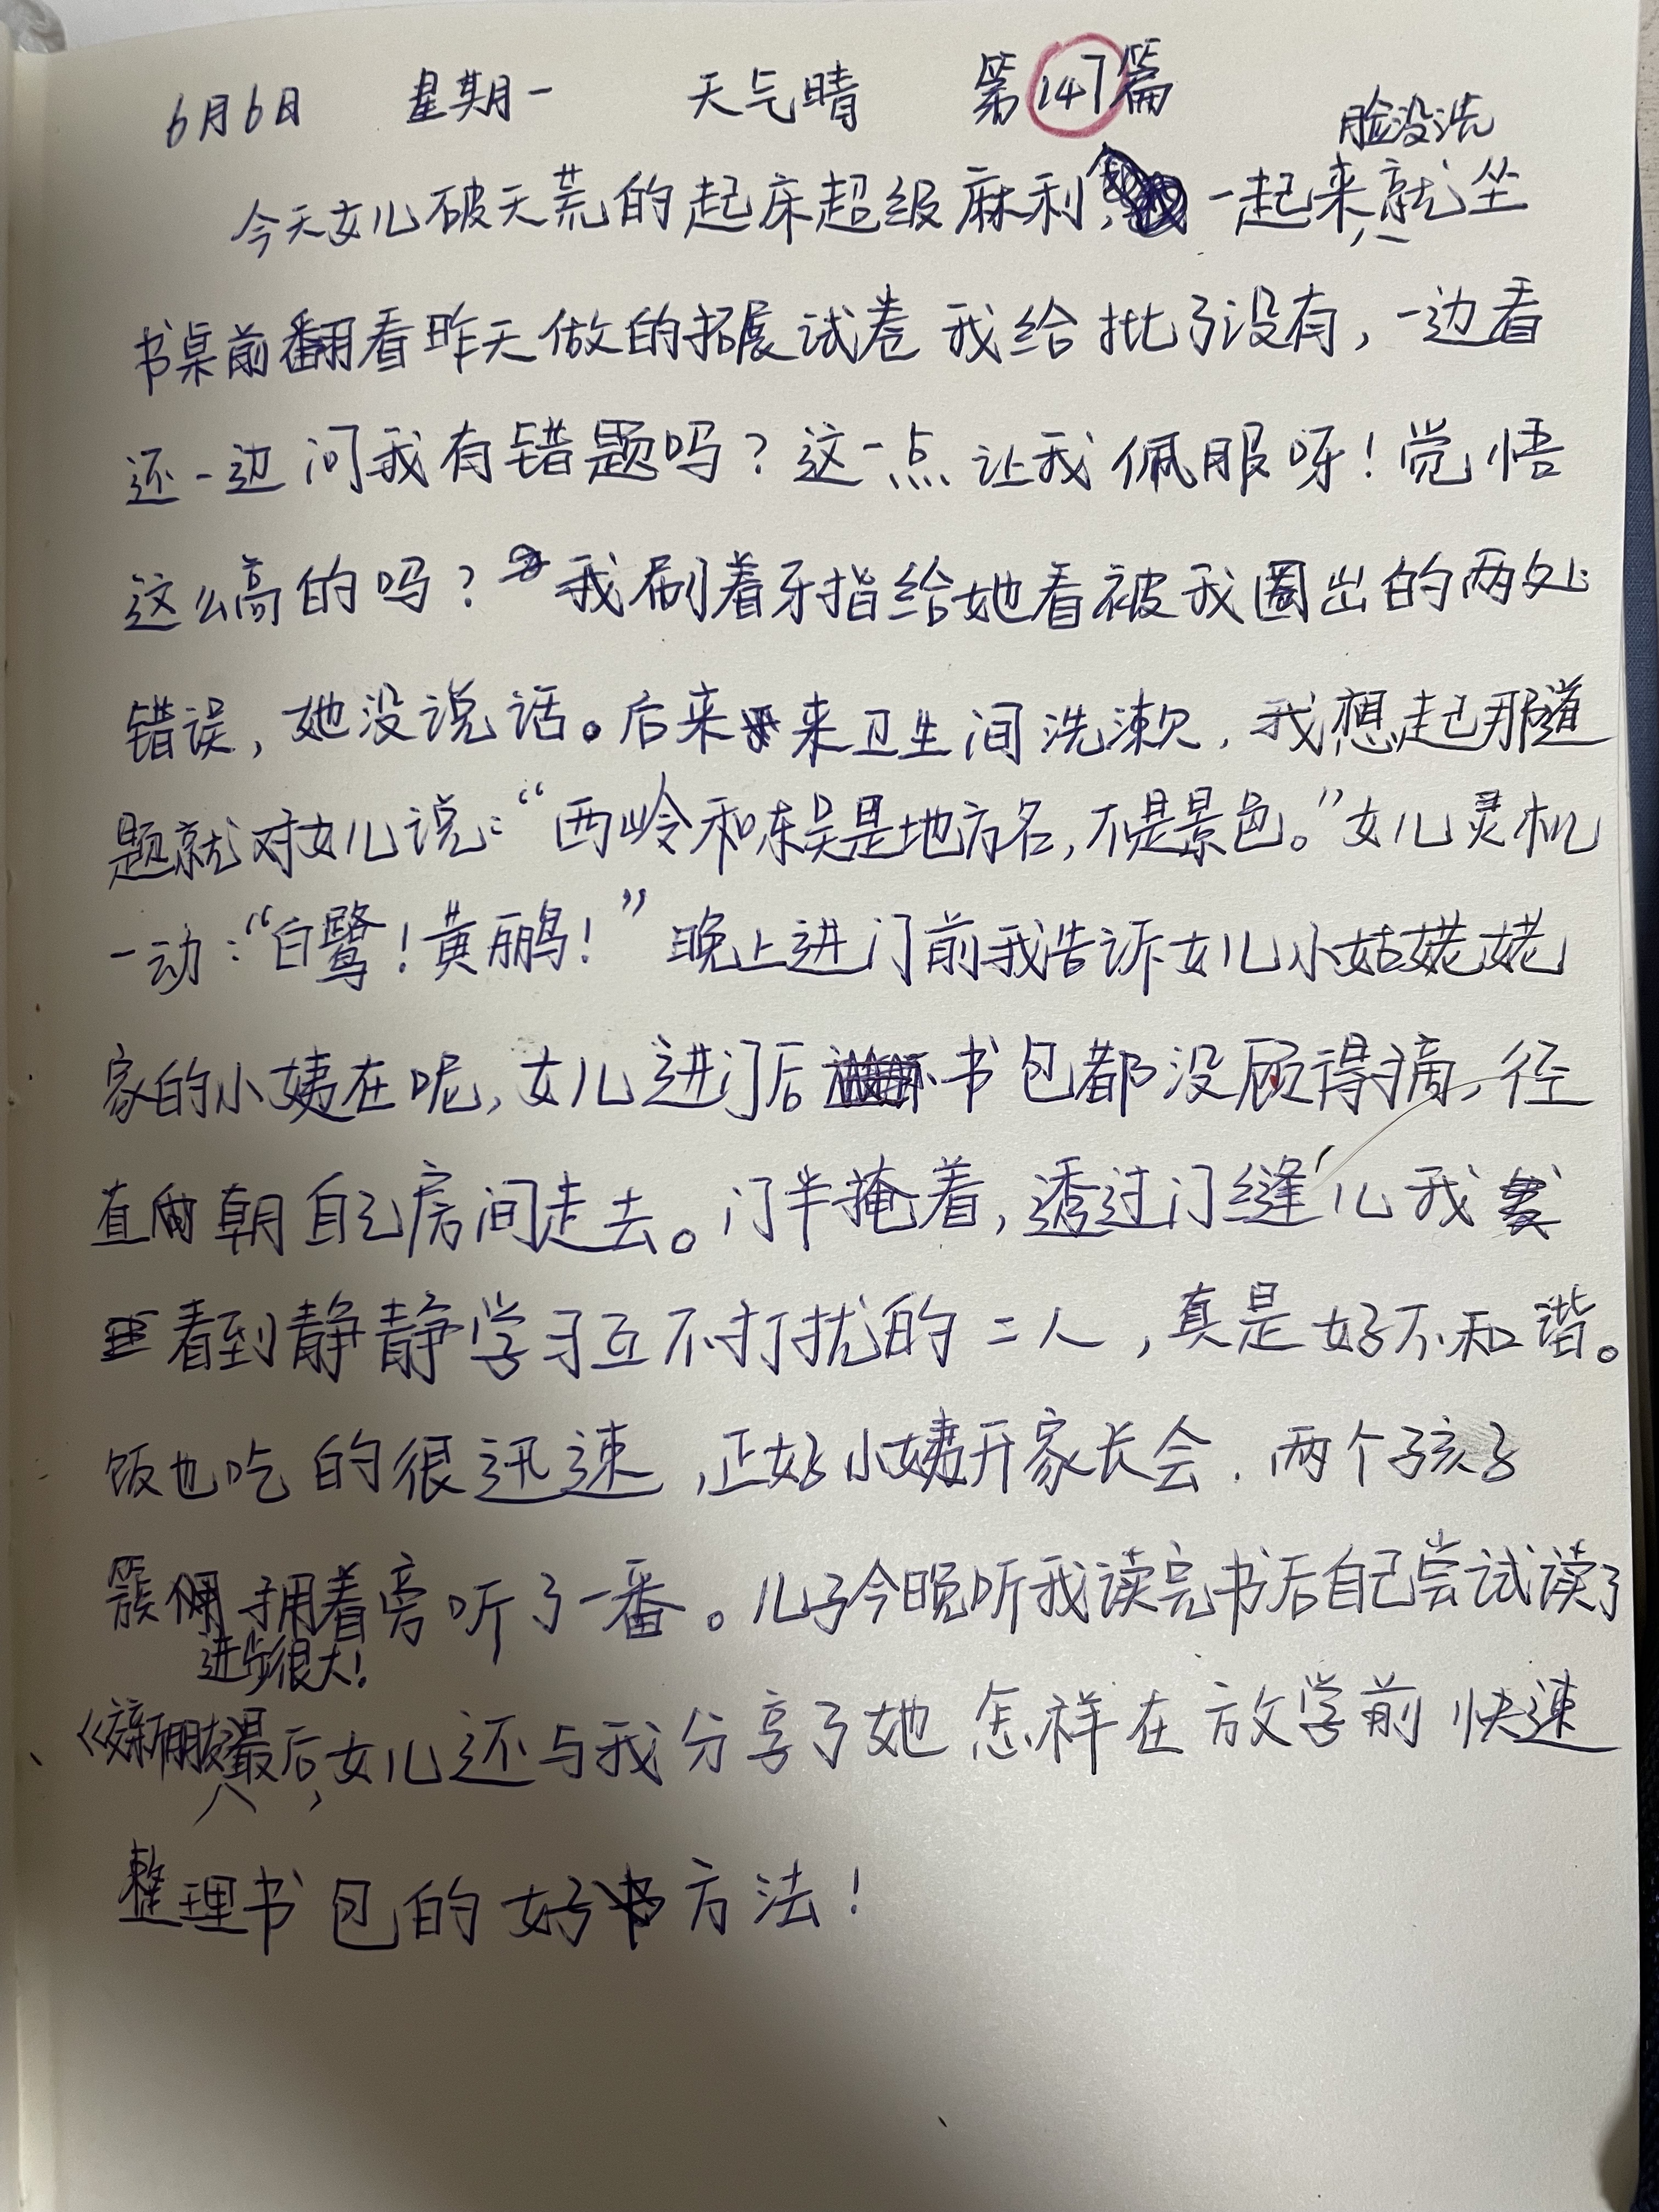 6月6日 星期一 天气晴 第147篇
脸没洗
今天女儿破天荒的起床超级麻利,一起来,就坐
书桌前翻看昨天做的拓展试卷我给批了没有,一边看
还一边问我有错题吗?这一点让我佩服呀!觉悟
这么高的吗?我刷着牙指给她看被我圈出的两处
错误,她没说话。后来来卫生间洗漱,我想起那道
题就对女儿说:“西岭和东吴是地方名,不是景色。”女儿灵机
一动:“白鹭!黄鹂!”晚上进门前我告诉女儿小姑姥姥
家的小姨在呢,女儿进门后书包都没顾得摘,径
直朝自己房间走去。门半掩着,透过门缝儿我
看到静静学习互不打扰的二人,真是好不和谐。
饭也吃的很迅速,正好小姨开家长会,两个孩子
簇拥着旁听了一番。儿子今晚听我读完书后自己尝试读了
进步很大!
《交新朋友》最后,女儿还与我分享了她怎样在放学前快速
整理书包的好方法!